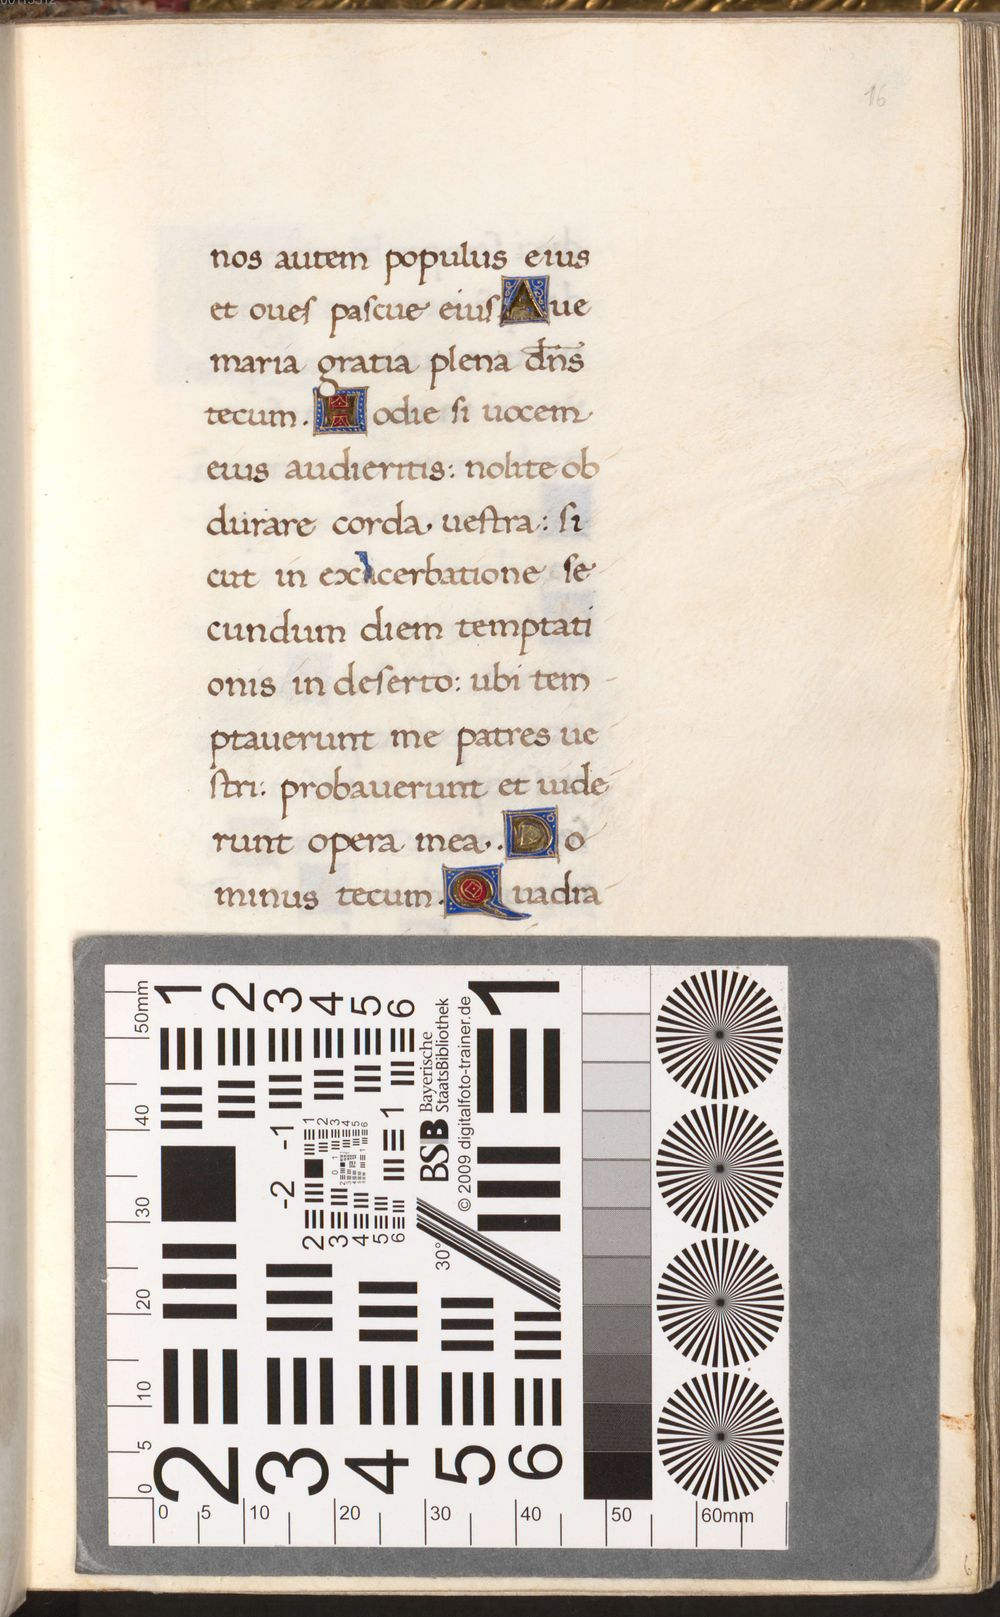 16
nos autem populus eius
et oues pascue eius Aue
maria gratia plena dn̄s
tecum. Hodie si uocem
eius audieritis: nolite ob
durare corda uestra: si
cut in exacerbatione se
cundum diem temptati
onis in deserto: ubi tem
ptauerunt me patres ue
stri: probauerunt et uide
runt opera mea. Do
minus tecum. Quadra
1 2 3 4 5 6
1
BSB Bayerische
StaatsBibliothek
© 2009 digitalfoto-trainer.de
-2 -1
30°
2 3 4 5 6
0 5 10 20 30 40 50mm
0 5 10 20 30 40 50 60mm